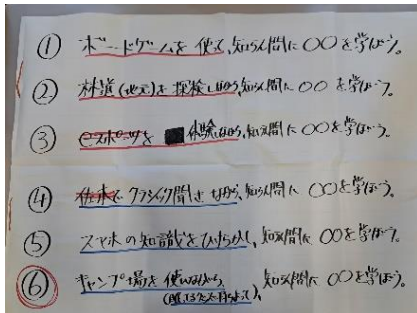 ① ボードゲームを使って、知らん間に〇〇を学ぼう。
② 林道(地元)を探検しながら、知らん間に〇〇を学ぼう。
③ eスポーツを 体験しながら、知らん間に〇〇を学ぼう。
④ でクラシック聞きながら、知らん間に〇〇を学ぼう。
⑤ スマホの知識をひけらかし、知らん間に〇〇を学ぼう。
⑥ キャンプ場を使いながら、知らん間に〇〇を学ぼう。